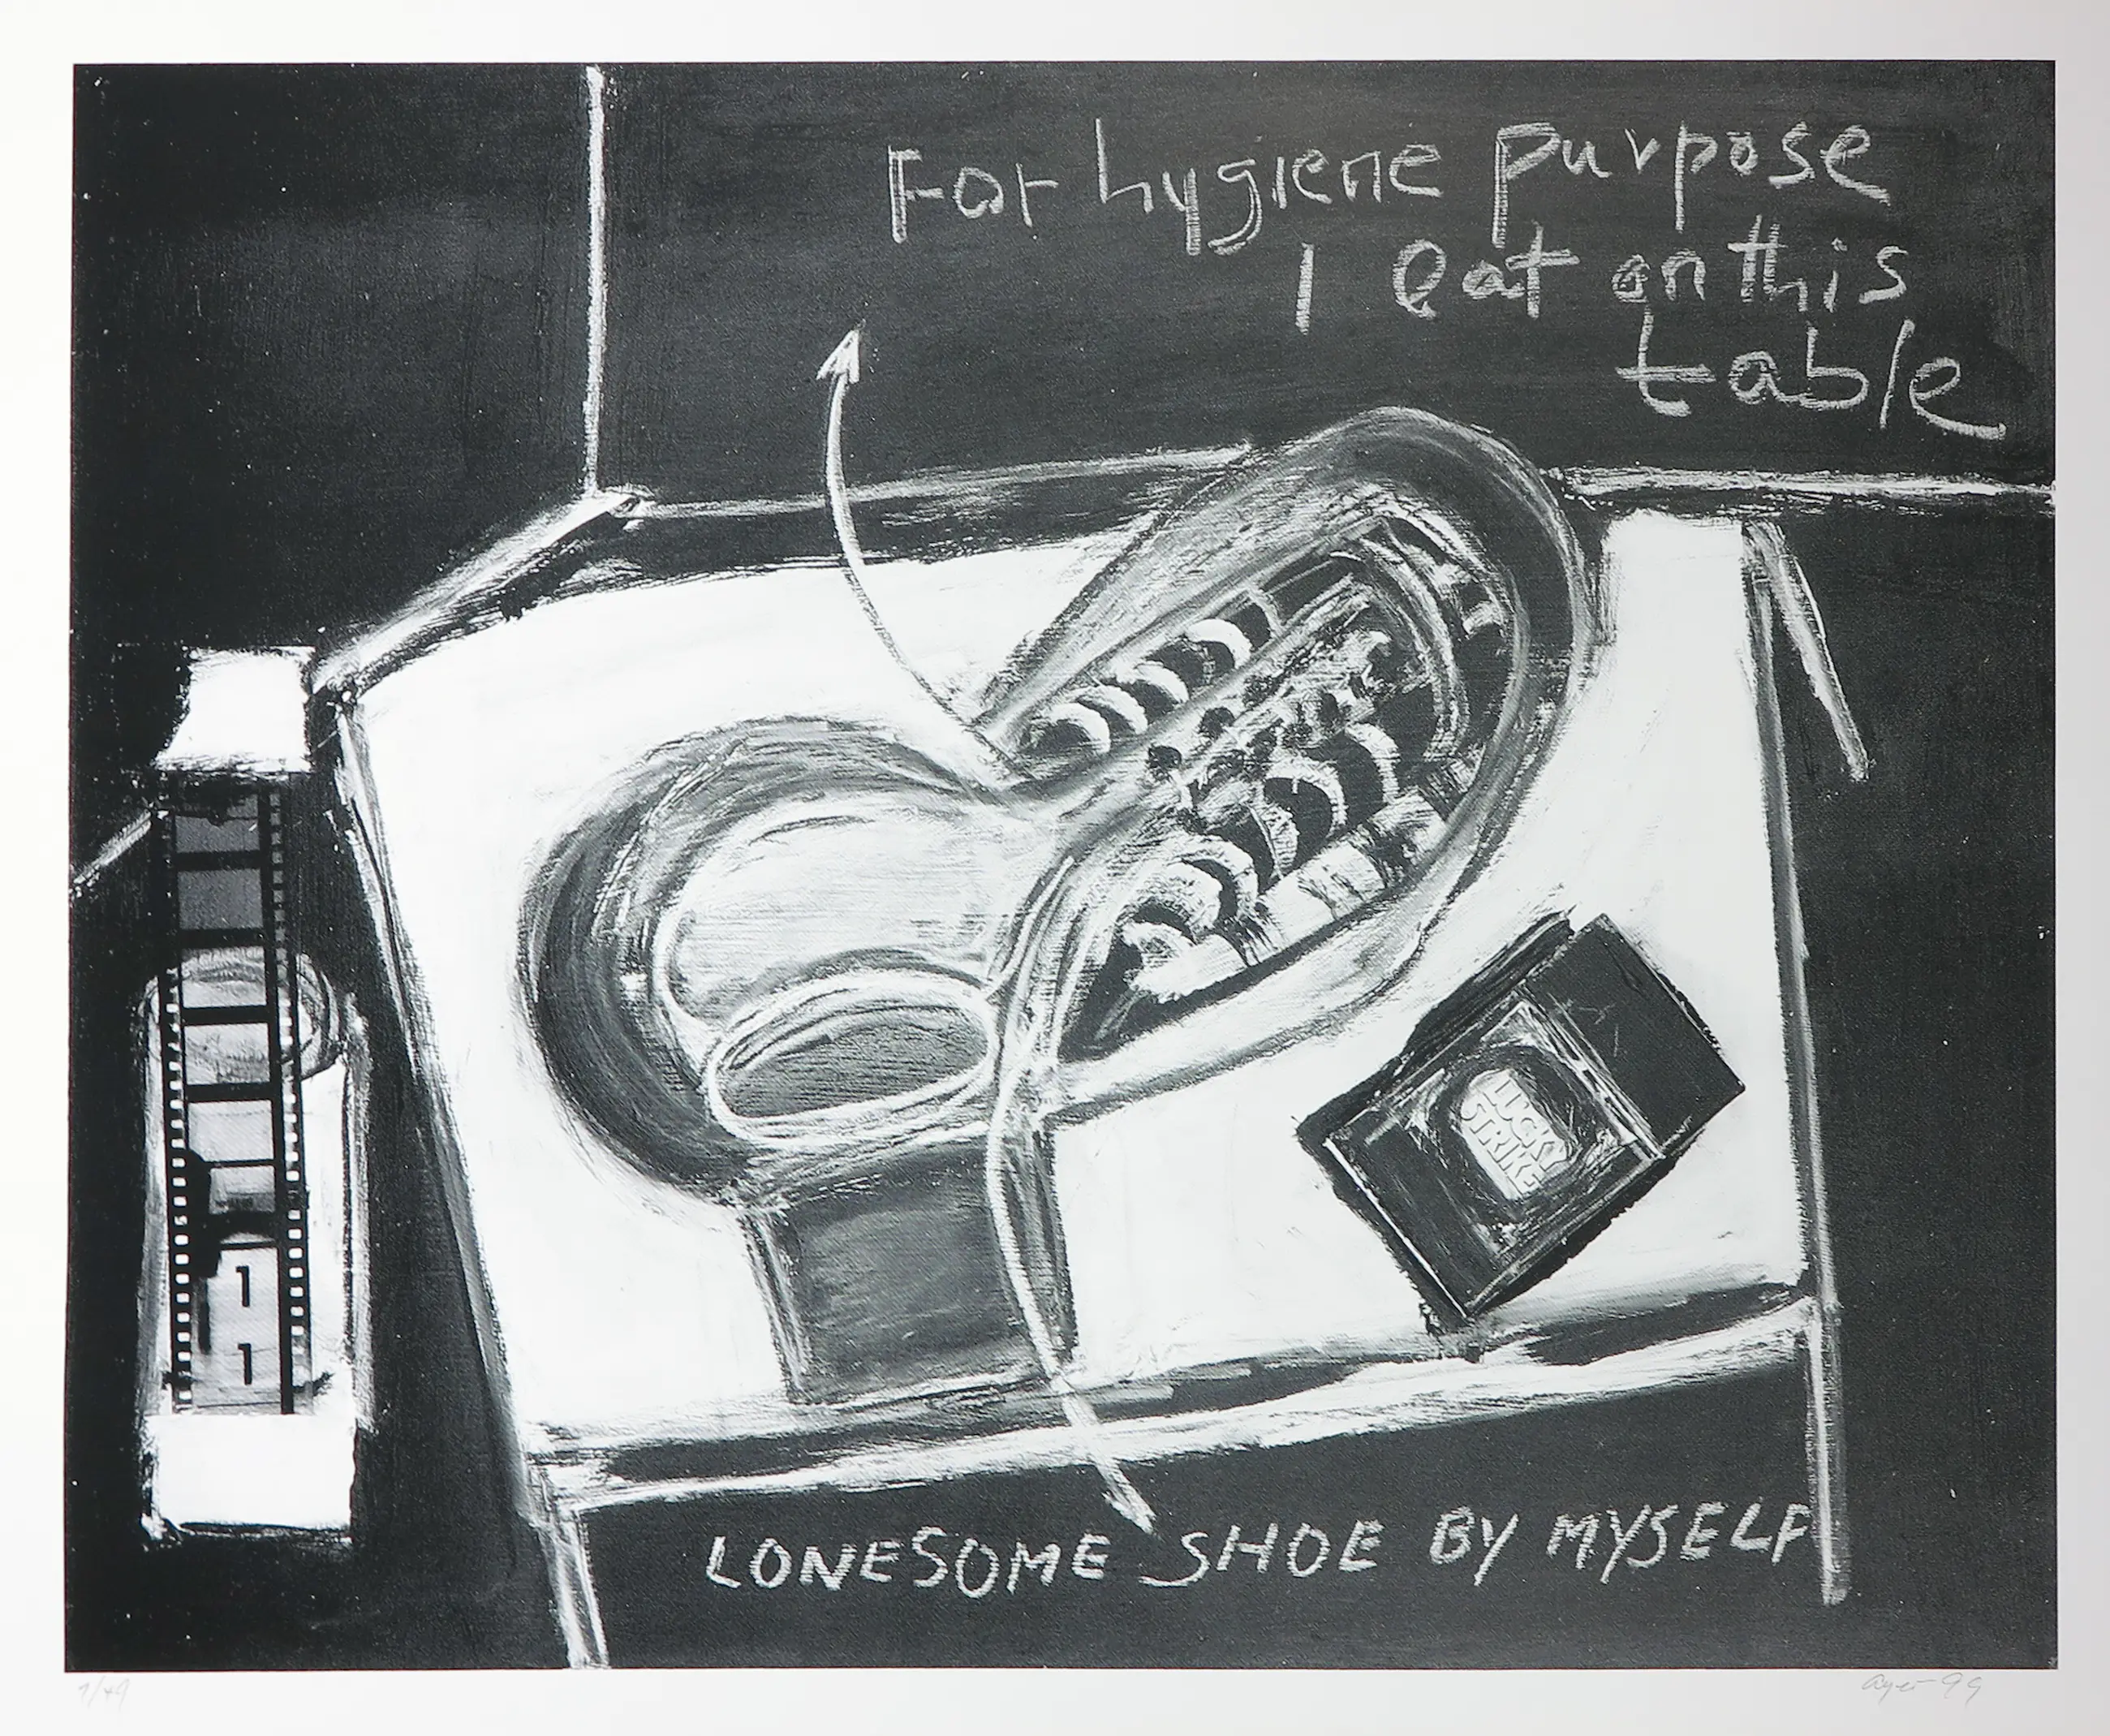 For hygiene purpose
I eat on this
table
LUCKY
STRIKE
1
1
LONESOME SHOE BY MYSELF
99